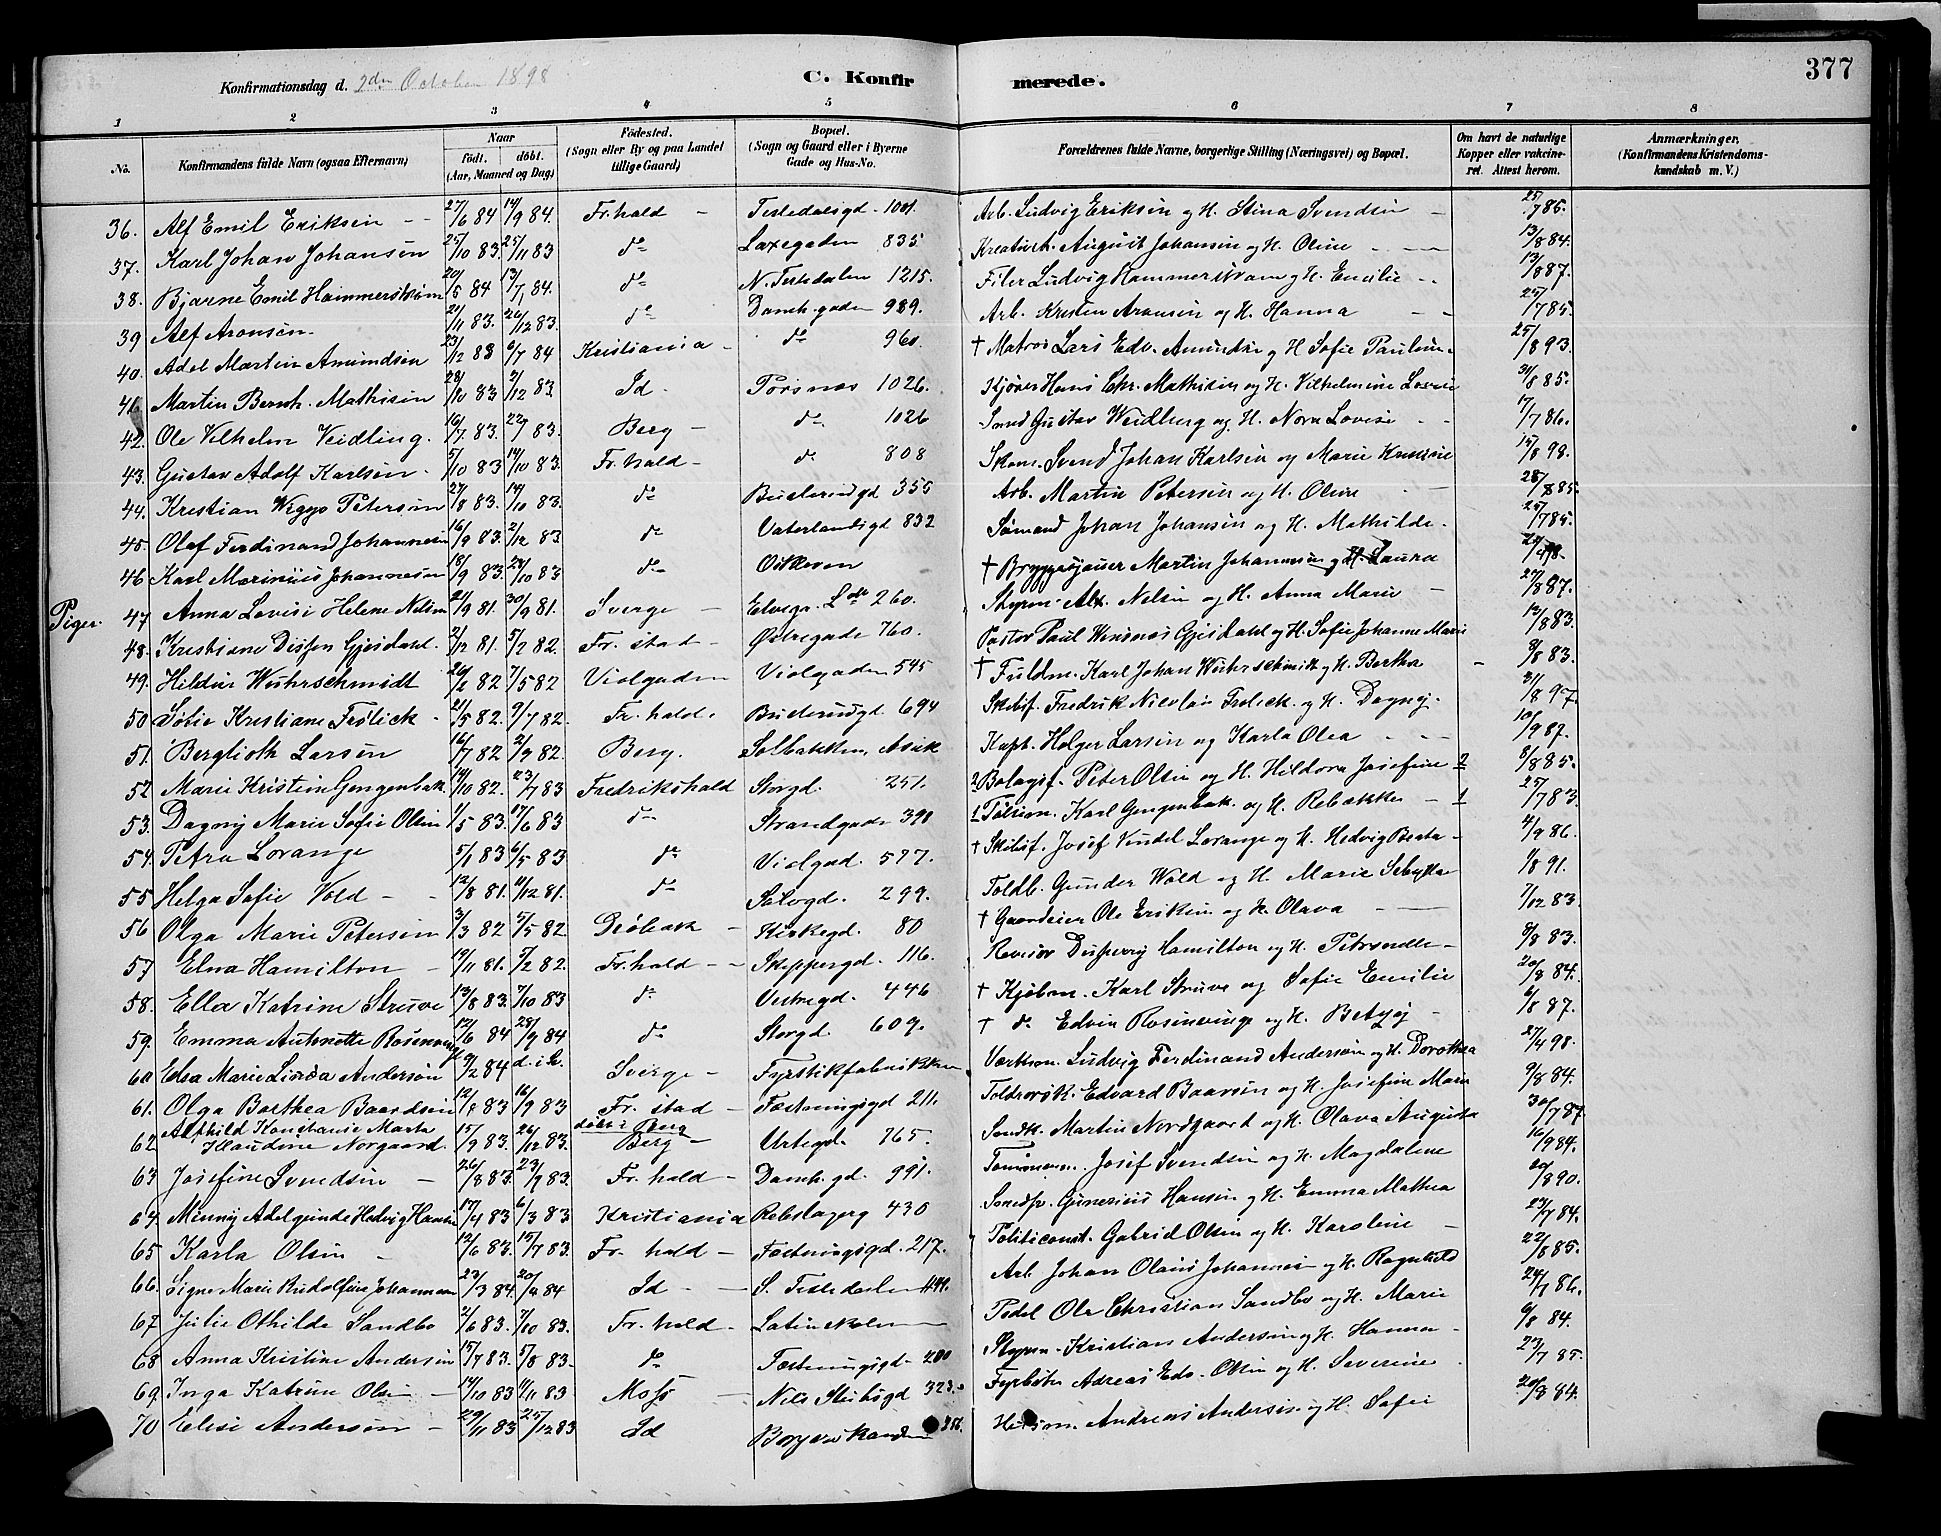 377
Konfirmationsdag d. 2den October 1898
C. Konfirmerede.
1 2 3 4 5 6 7 8
No. Konfirmandens fulde Navn (ogsaa Efternavn) Naar født. døbt. (Aar, Maaned og Dag) Fødested. (Sogn eller By og paa Landet tillige Gaard) Bopæl. (Sogn og Gaard eller i Byerne Gade og Hus-No. Forældrenes fulde Navne, borgerlige Stilling (Næringsvei) og Bopæl. Om havt de naturlige Kopper eller vakcineret. Attest herom. Anmærkninger, (Konfirmandens Kristendomskundskab m. V.)
36. Alf Emil Eriksen 27/6 84 14/9 84. Fr.hald Tistedalsgd. 1001. Arb. Ludvig Eriksen og H. Stina Svendsen 25/7 85.
37. Karl Johan Johansen 25/10 83. 25/11 83 do Laxegaden 835 August Johansen og H. Oline 13/8 84.
38. Bjarne Emil Hammerstrøm 20/5 84 13/7 84. do N. Tistedalen 1215. Filer Ludvig Hammerstrøm og H. Emilie 13/8 87.
39 Alf Aronsen 21/11 83. 26/12 83. do Damh.gaden 989. Arb. Kristen Aronsen og H. Hanna 25/7 85.
40. Adel Martin Amundsen 23/12 83 6/7 84 Kristiania do 960. † Matros Lars Edv. Amundsen og H Sofie Pauline 25/8 93.
41 Martin Bernh. Mathisen 28/10 83 2/12 83. Id. Torsnæs 1026. Hans Chr. Mathisen og H. Vilhelmine Lovise 31/8 85.
42. Ole Vilhelm Veidling. 16/7 83. 22/7 83. Berg do 1026 Gustav Weidling og H. Nora Lovise 17/7 86.
43. Gustav Adolf Karlsen 5/10 83 14/10 83. Fr.hald do 808 Skom. Svend Johan Karlsen og Marie 15/8 98.
44. Kristian Wiggo Petersen 27/8 83. 14/10 83. do Busterudgd 355 Arb. Martin Petersen og H. Oline 28/8 85.
45. Olaf Ferdinand Johannesen 16/9 83. 2/12 83 do Vaterlandsgd 832 Sømand Johan Johansen og H. Mathilde 25/7 85.
46 Karl Marinius Johannesen 18/9 83. 28/10 83 do † Bryggesjauer Martin Johannesen og H. Laura
Piger.
47 Anna Lovise Helene Nelsen 21/9 81. 30/9 81. Sverge Elvegd. 260. Styrm. Alx. Nelsen og H. Anna Marie 27/8 87.
48. Kristiane Dissen Gjesdahl. 2/12 81. 5/2 82. Fr. stad Østregade 760. Pastor Paul Wensnes Gjesdahl og H. Sofie Johanne Marie 12/8 83.
49. Hildur Wuhrschmidt 26/2 82 7/5 82 Violgaden Violgaden 545 † Fuldm. Karl Johan Wuhrschmidt og H. Bertha 9/8 83.
50 Sofie Kristiane Frølich 21/5 82. 9/7 82. Fr. hald. Busterudgd 694 Skibsf. Fredrik Nicolai Frølich og H. Dagny. 31/8 97.
51. Berglioth Larsen 16/7 82 2/9 82. Berg. Solbakken, Asak Kapt. Holger Larsen og Karla Olea 10/9 87.
52 Marie Kristin Gengenbak 19/10 82. 23/7 83 Fredrikshald Storgd. 251. 2 Bolagsf. Peter Olsen og H. Hildora Josefine 2 8/8 85.
53. Dagny Marie Sofie Olsen 1/5 83. 17/6 83 do Strandgade 398 1 Karl Gengenbak og H. Rebækka 1 25/7 83
54. Petra Lorange 5/1 83 6/5 83 do Violgad. 577. † Skibsf. Josef Lorange og H. Hedvig Berta 4/9 86.
55 Helga Sofie Vold 12/8 81. 11/12 81. do Salvgd. 299. Toldb. Gunder Wold og H. Marie 1/8 91.
56 Olga Marie Petersen 3/3 82 5/5 82. Drøbak Kirkegd. 80 † Gaardeier Ole Eriksen og H. Olava 7/12 83.
57 Elna Hamilton 19/11 81. 7/2 82. Fr.hald Skippergd. 116. Revisor Hamilton og H. 9/8 83.
58. Ella Katrine Struve 13/8 83. 7/10 83 do Vestregd. 446 † Kjøbm. Karl Struve og Sofie Emilie 20/8 84.
59. Emma Antonette Rosenvinge 12/6 84 28/9 84 do Storgd. 609. † do Edvin Rosenvinge og H. Betzy 6/8 87.
60 Elsa Marie Linda Andersøn 9/2 84 Sverge Værkm. Ludvig Ferdinand Andersøn og H. Dorothea 27/4 98.
61. Olga Barthea Baardsen 12/8 83 16/9 83 Fr. stad Fæstningsgd 211. Edvard Baarsen og H. Josefine Marie 9/8 84.
62 Alfhild Konstanse Marta Klaudine Norgaard. 15/9 83. 26/12 83. døbt i Berg Berg Urtegd. 765. Martin Nordgaard og H. Olava Augusta 30/7 87.
63 Josefine Svendsen 26/8 83. 23/9 83. Fr. hald Damh.gd. 991. Tømmerm. Josef Svendsen og H. Magdalene 16/9 84.
64 Minny Adelgunde Hedvig Hansen 17/4 83 6/3 83 Kristiania Rebslagerg 430 Hansen og H. Emma Mathea 20/8 90.
65 Karla Olsen 12/6 83. 15/7 83. Fr. hald Fæstningsgd. 217. Politiconst. Gabriel Olsen og H. Karoline 23/7 84.
66. Signe Marie Rudolfine Johannesen 23/3 84. 20/4 84 Id S. Tistedalen Arb. Johan Olaus Johannesen og H. Ragnhild 22/8 85.
67 Julie Othilde Sandbo 2/6 83. 7/10 83. Fr. hald. Latinskolen Pedel Ole Christian Sandbo og H. Marie 24/7 86.
68 Anna Kristine Andersen 15/7 83. 5/8 83. do Fæstningsgd. 200 Styrm. Kristian Andersen og H. Hanna 6/8 84.
69. Inga Katrine Olsen 14/10 83 11/11 83. Moss Nils Stubsgd 323. Fyrbøter Adreas Edv. Olsen og H. Severine 23/7 85.
70 Elise Andersen 29/11 83 25/12 83 Id 256. Andreas Andersen og H. Sofie 20/8 84.